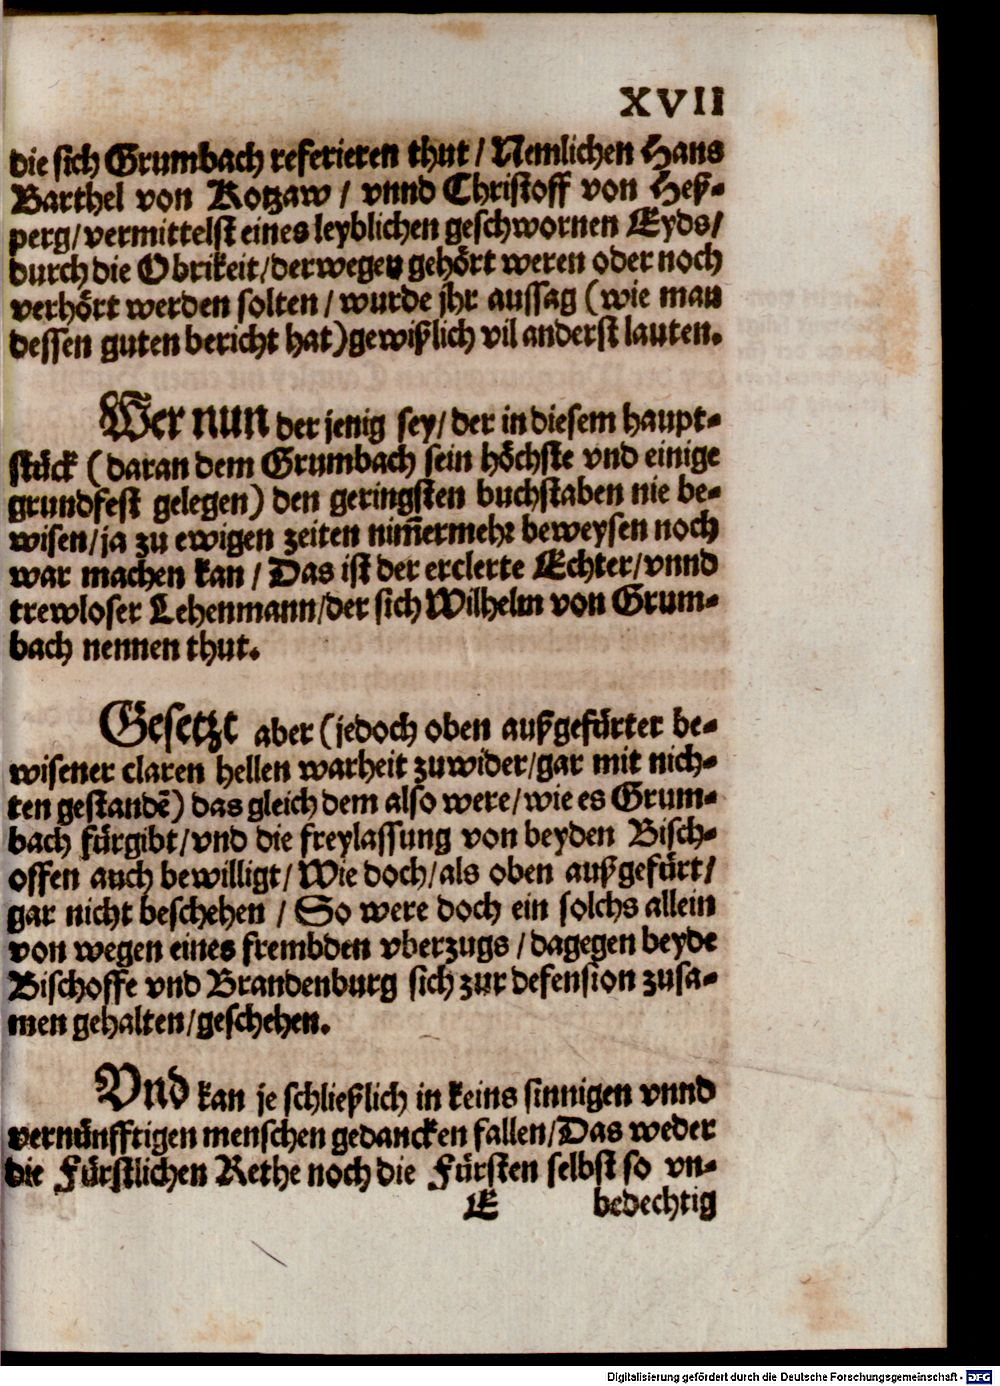 XVII
die sich Grumbach referieren thut / Nemlichen Hans
Barthel von Kotzaw / vnnd Christoff von Heß-
perg/vermittelst eines leyblichen geschwornen Eyds/
durch die Obrikeit/derwegen gehört weren oder noch
verhört werden solten / wurde jhr aussag (wie man
dessen guten bericht hat)gewißlich vil anderst lauten.
Wer nun der jenig sey/ der in diesem haupt-
stück (daran dem Grumbach sein höchste vnd einige
grundfest gelegen) den geringsten buchstaben nie be-
wisen/ja zu ewigen zeiten nim̃ermehr beweysen noch
war machen kan / Das ist der erclerte Echter/vnnd
trewloser Lehenmann/der sich Wilhelm von Grum-
bach nennen thut.
Gesetzt aber (jedoch oben außgefürter be-
wisener claren hellen warheit zuwider/gar mit nich-
ten gestandẽ) das gleich dem also were/wie es Grum-
bach fürgibt/vnd die freylassung von beyden Bisch-
offen auch bewilligt/Wie doch/als oben außgefürt/
gar nicht beschehen / So were doch ein solchs allein
von wegen eines frembden vberzugs /dagegen beyde
Bischoffe vnd Brandenburg sich zur defension zusa-
men gehalten/geschehen.
Vnd kan je schließlich in keins sinnigen vnnd
vernünfftigen menschen gedancken fallen/Das weder
die Fürstlichen Rethe noch die Fürsten selbst so vn-
E bedechtig
Digitalisierung gefördert durch die Deutsche Forschungsgemeinschaft - DFG